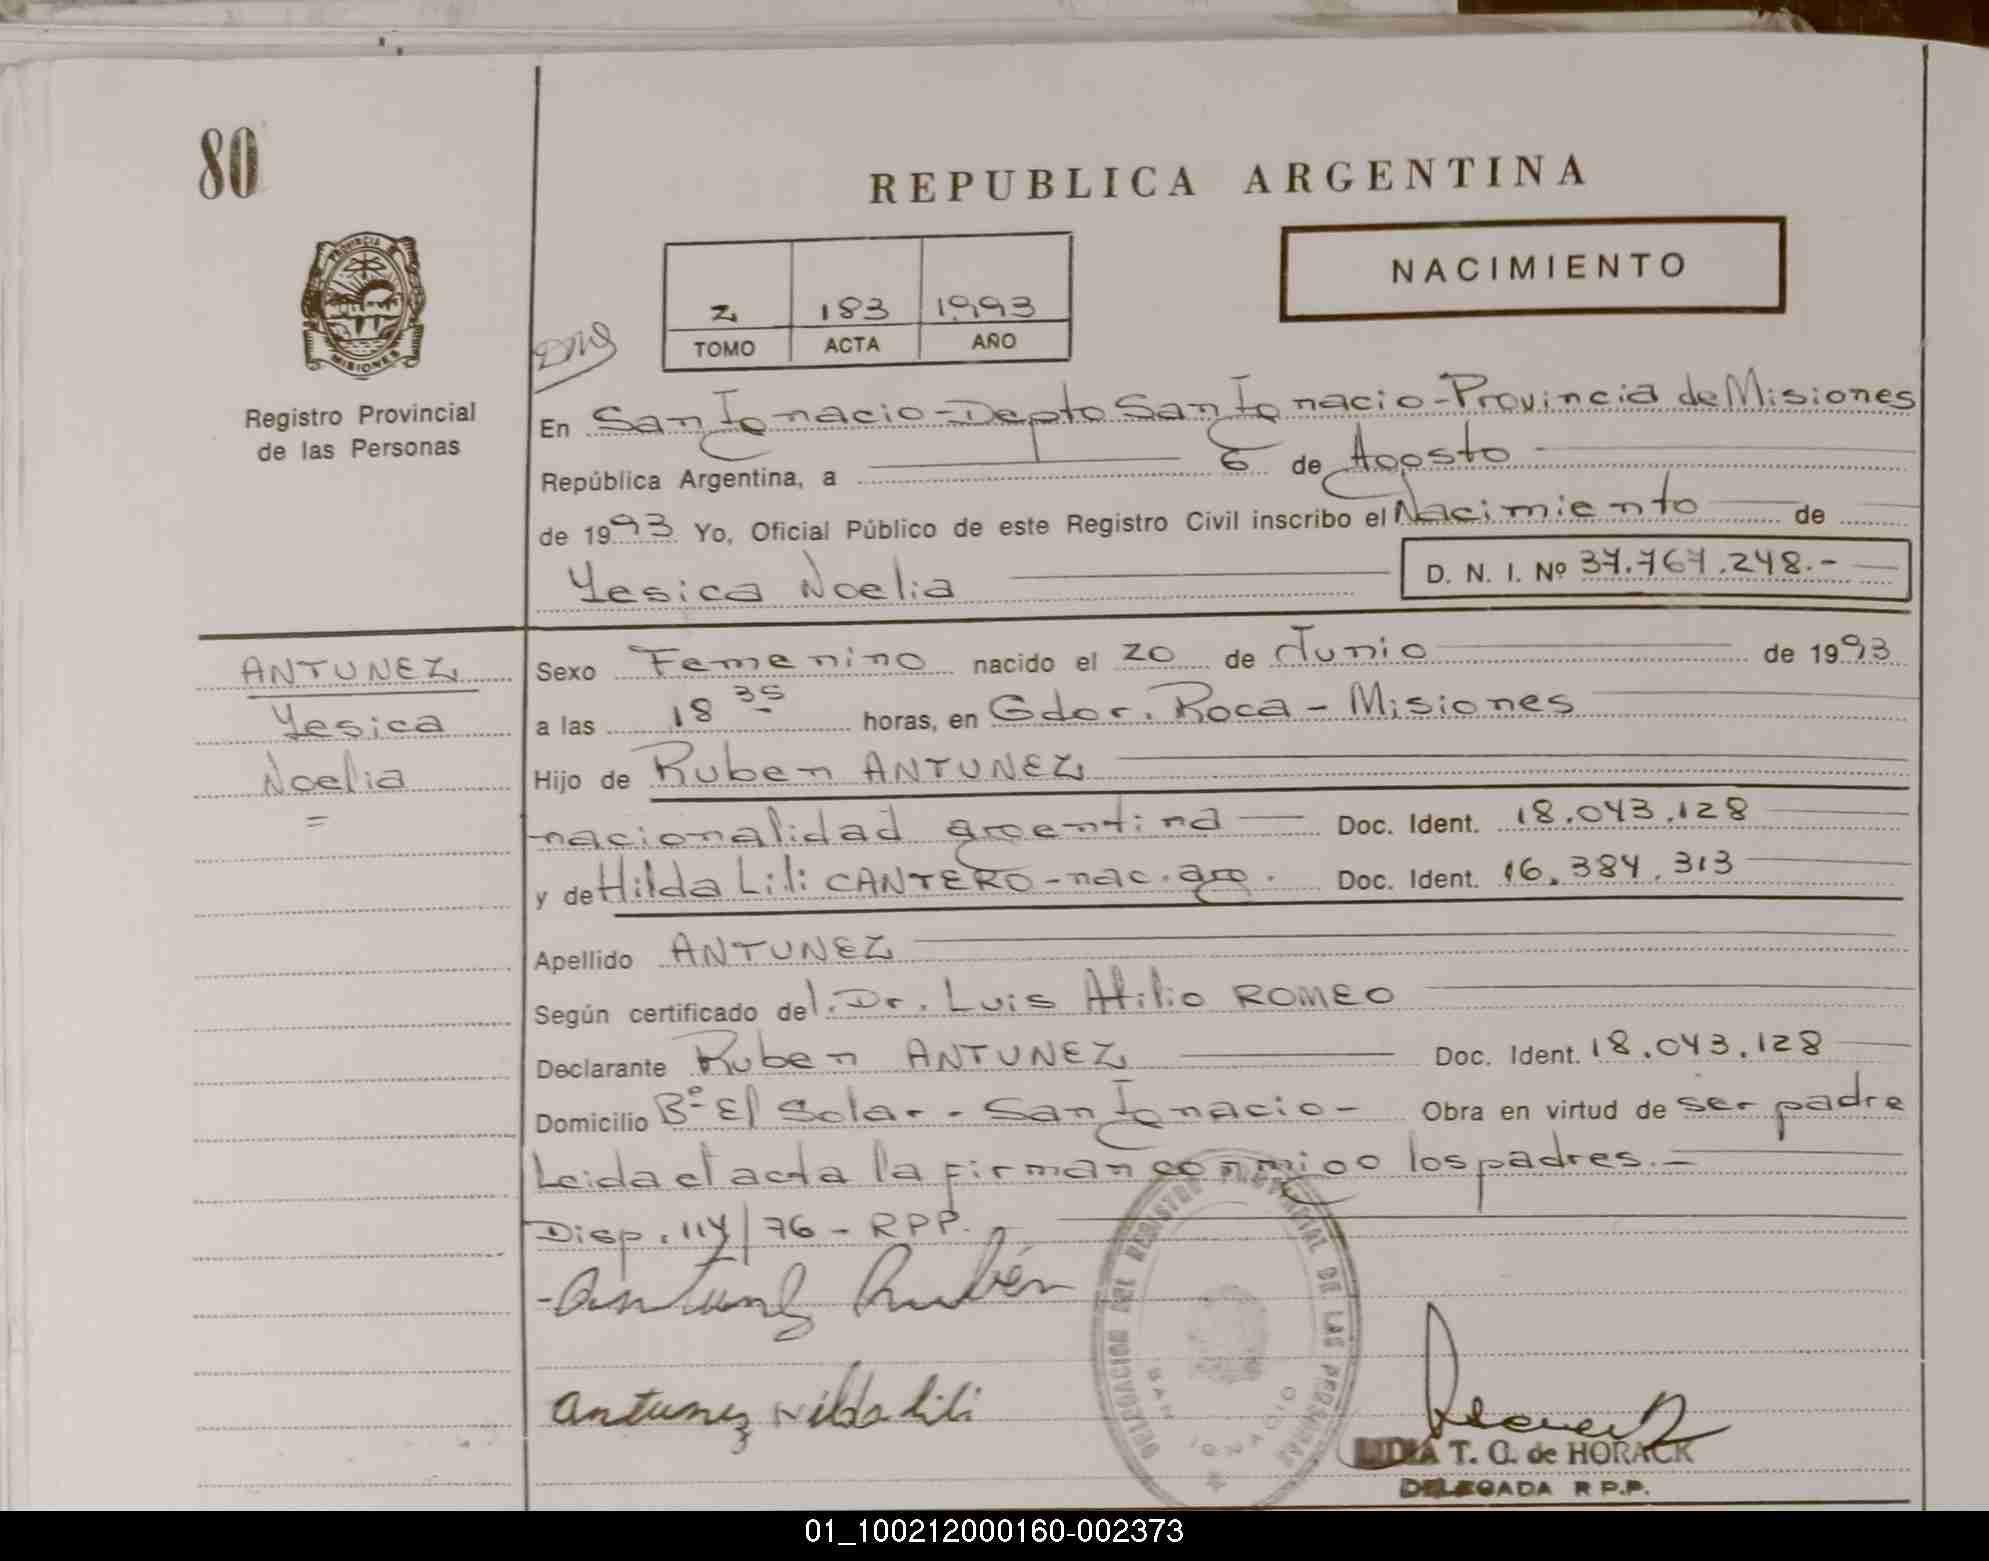 80
REPUBLICA ARGENTINA
NACIMIENTO
PROVINCIA DE MISIONES
2 183 1993
TOMO ACTA AÑO
Registro Provincial
de las Personas
En San Ignacio - Depto San Ignacio - Provincia de Misiones
República Argentina, a 6 de Agosto
de 1993 Yo, Oficial Público de este Registro Civil inscribo el Nacimiento de
Yesica Noelia D. N. I. Nº 37.767.248.-
ANTUNEZ
Yesica
Noelia
=
Sexo Femenino nacido el 20 de Junio de 1993
a las 18 35 horas, en Gdor. Roca - Misiones
Hijo de Ruben ANTUNEZ
nacionalidad argentina Doc. Ident. 18.043.128
y de Hilda Lili CANTERO - nac. arg. Doc. Ident. 16.384.313
Apellido ANTUNEZ
Según certificado del. Dr. Luis Atilio ROMEO
Declarante Ruben ANTUNEZ Doc. Ident. 18.043.128
Domicilio Bº El Solar - San Ignacio - Obra en virtud de ser padre
Leida el acta la firman conmigo los padres.-
Disp. 114/76 - RPP.
- Antunez Rubén
Antunez Hilda Lili
DELEGACION DEL REGISTRO PROVINCIAL DE LAS PERSONAS
SAN IGNACIO
LIDIA T. G. de HORACK
DELEGADA R P.P.
01_100212000160-002373